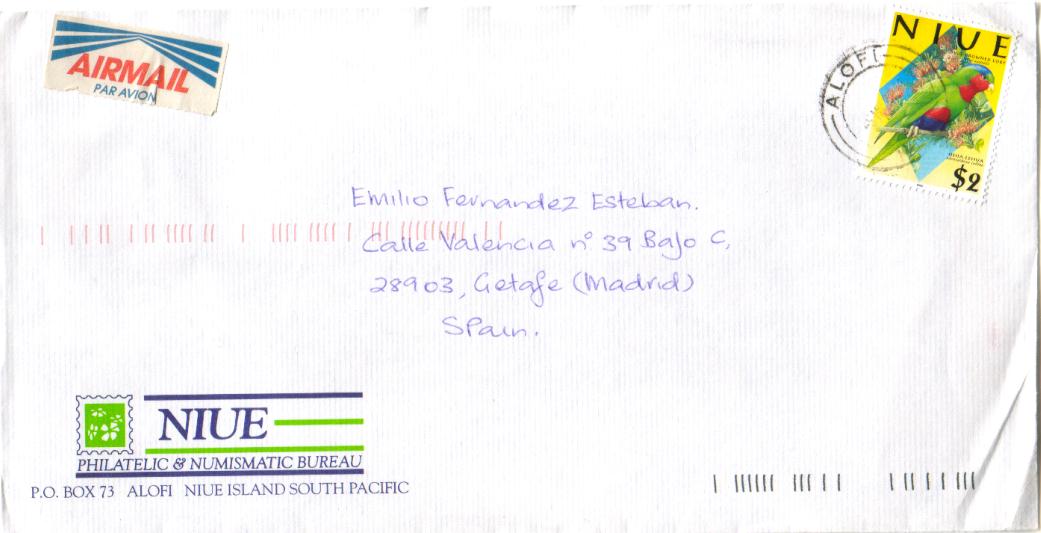 AIRMAIL
PAR AVION
NIUE
CROWNED LORY
$2
ALOFI
Emilio Fernandez Esteban.
Calle Valencia nº 39 Bajo C,
28903, Getafe (Madrid)
Spain.
NIUE
PHILATELIC & NUMISMATIC BUREAU
P.O. BOX 73 ALOFI NIUE ISLAND SOUTH PACIFIC